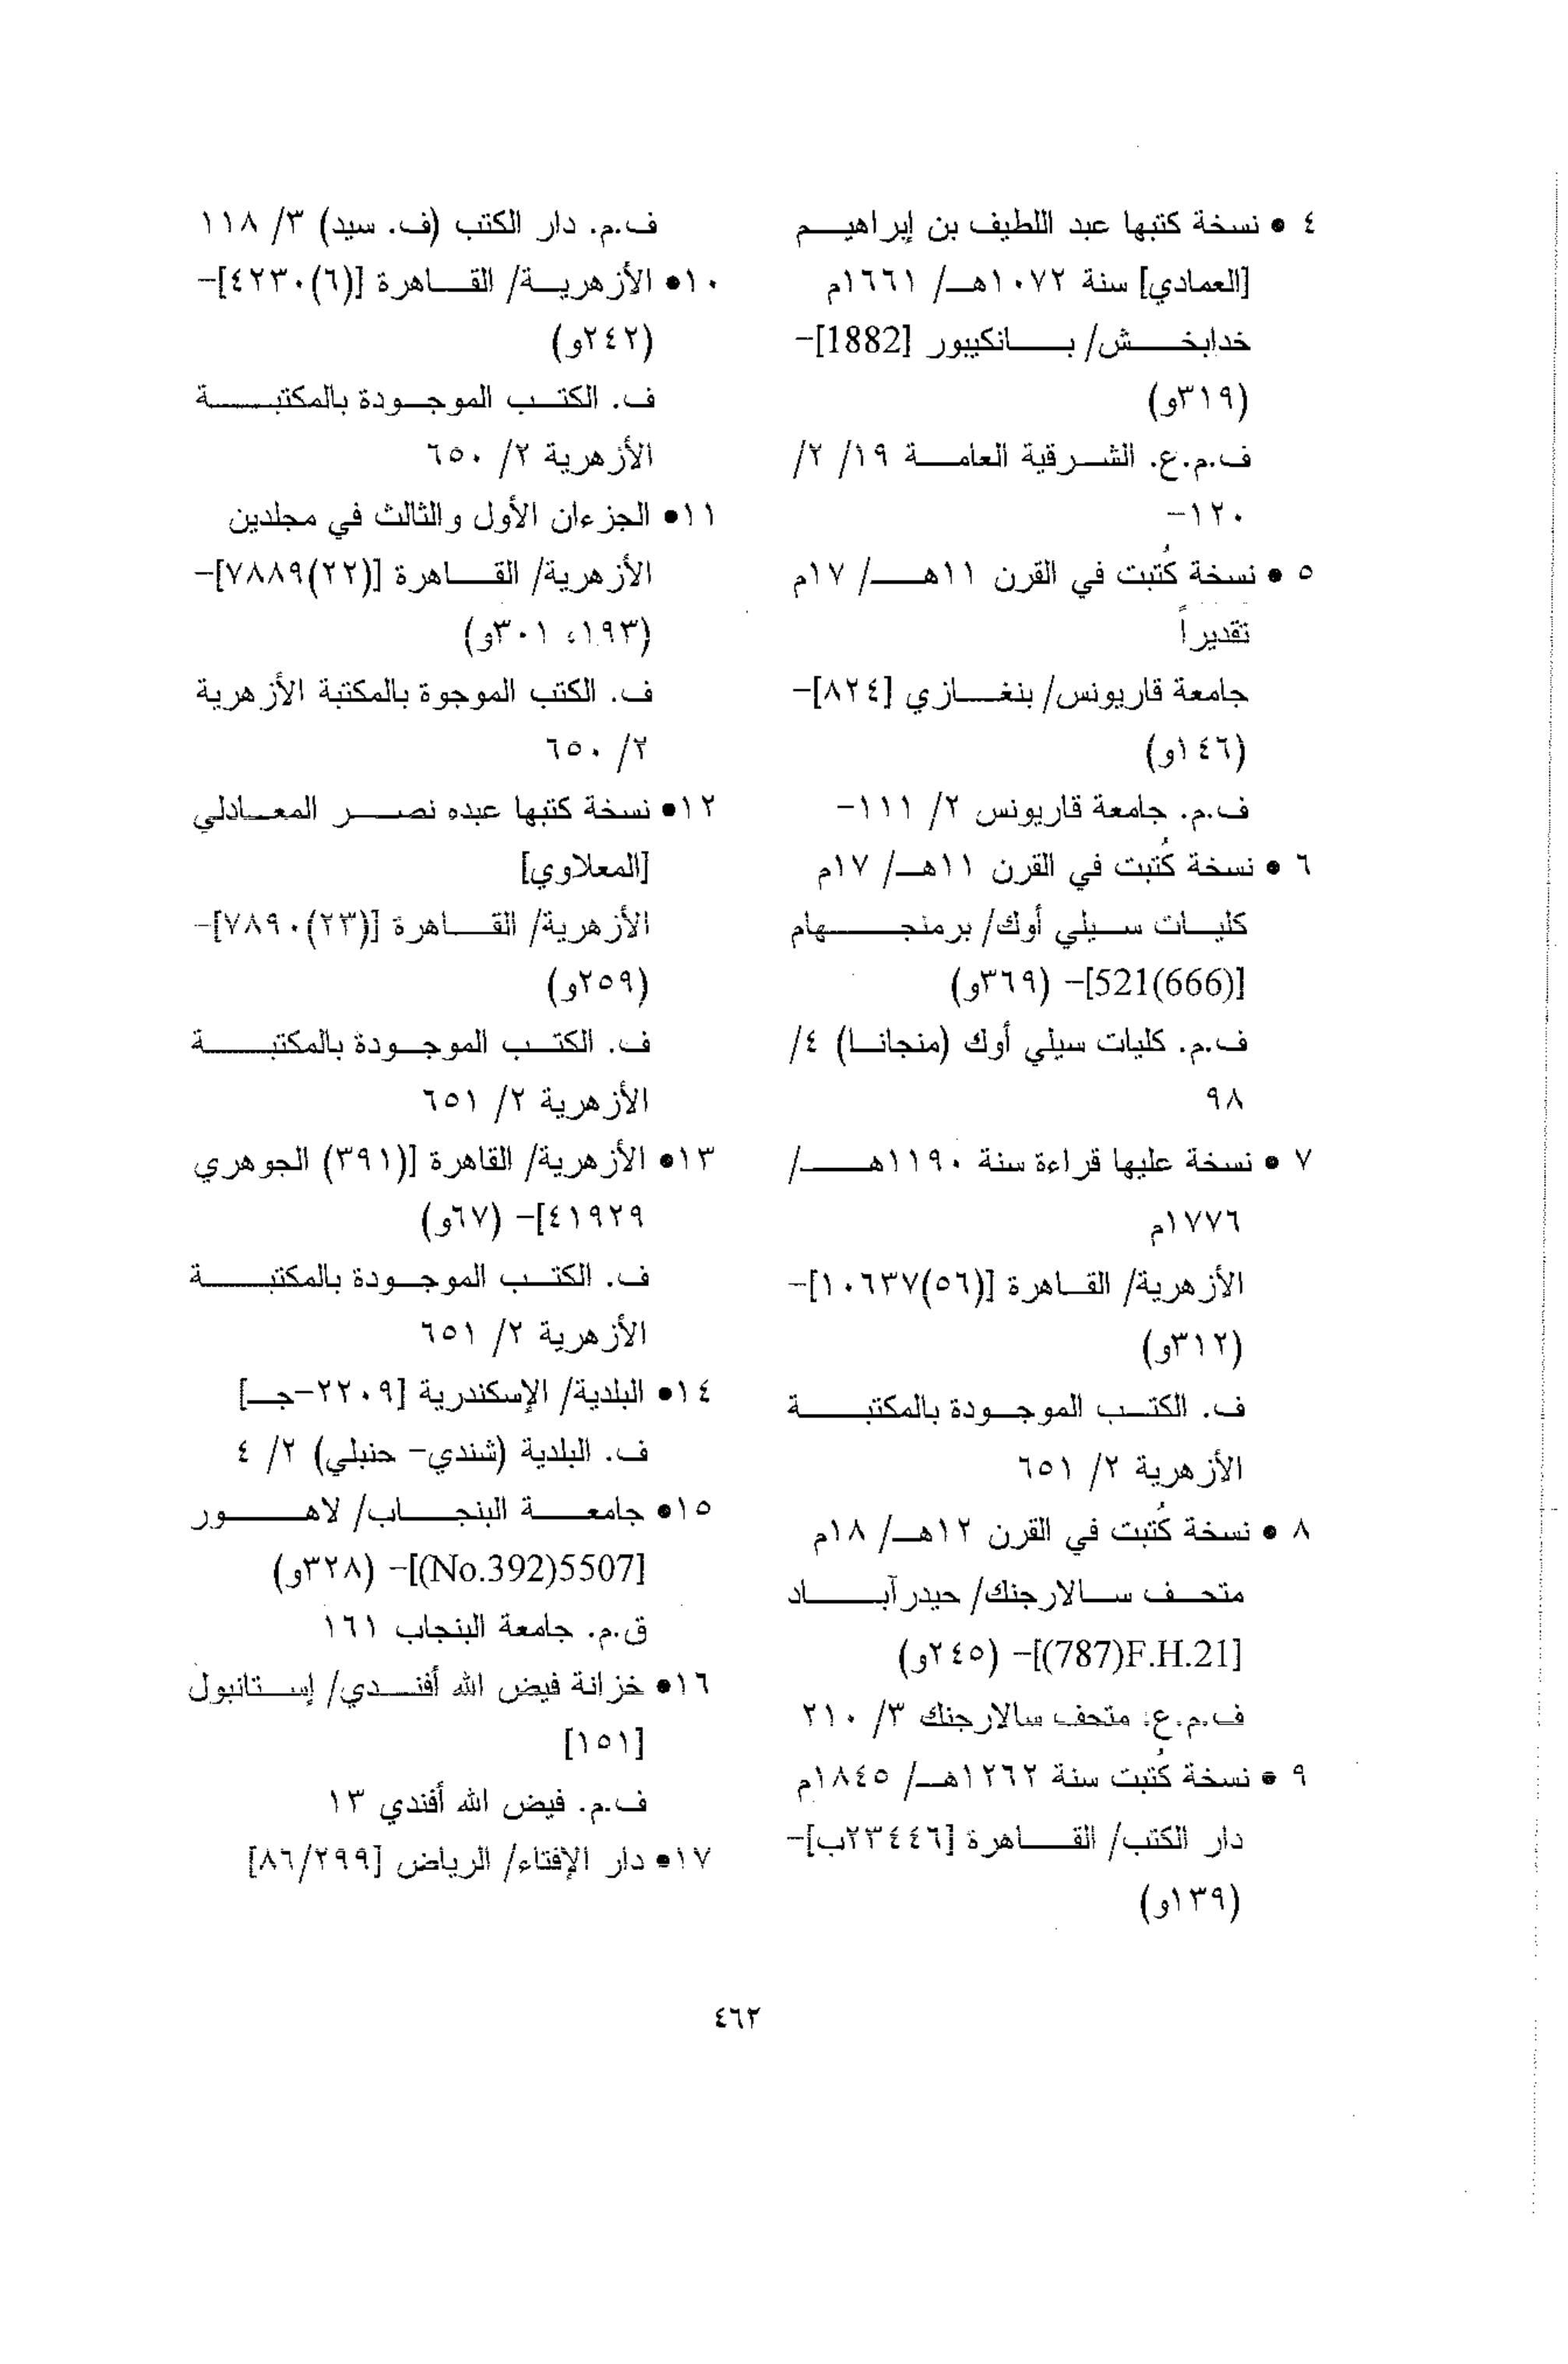 ٤ • نسخة كتبها عبد اللطيف بن إبراهيم
[العمادي] سنة ١٠٧٢هـ/ ١٦٦١م
خدابخش/ بانكيبور [1882]-
(٣١٩و)
ف.م.ع. الشرقية العامة ١٩/ ٢/
١٢٠-
٥ • نسخة كُتبت في القرن ١١هـ/ ١٧م
تقديراً
جامعة قاريونس/ بنغازي [٨٢٤]-
(١٤٦و)
ف.م. جامعة قاريونس ٢/ ١١١-
٦ • نسخة كُتبت في القرن ١١هـ/ ١٧م
كليات سيلي أوك/ برمنجهام
[521(666)]- (٣٦٩و)
ف.م. كليات سيلي أوك (منجانا) ٤/
٩٨
٧ • نسخة عليها قراءة سنة ١١٩٠هـ/
١٧٧٦م
الأزهرية/ القاهرة [(٥٦)١٠٦٣٧]-
(٣١٢و)
ف. الكتب الموجودة بالمكتبة
الأزهرية ٢/ ٦٥١
٨ • نسخة كُتبت في القرن ١٢هـ/ ١٨م
متحف سالارجنك/ حيدرآباد
[(787)F.H.21]- (٢٤٥و)
ف.م.ع: متحف سالارجنك ٣/ ٢١٠
٩ • نسخة كُتبت سنة ١٢٦٢هـ/ ١٨٤٥م
دار الكتب/ القاهرة [٢٣٤٤٦ب]-
(١٣٩و)
ف.م. دار الكتب (ف. سيد) ٣/ ١١٨
١٠• الأزهرية/ القاهرة [(٦)٤٢٣٠]-
(٢٤٢و)
ف. الكتب الموجودة بالمكتبة
الأزهرية ٢/ ٦٥٠
١١• الجزءان الأول والثالث في مجلدين
الأزهرية/ القاهرة [(٢٢)٧٨٨٩]-
(١٩٣، ٣٠١و)
ف. الكتب الموجوة بالمكتبة الأزهرية
٢/ ٦٥٠
١٢• نسخة كتبها عبده نصر المعادلي
[المعلاوي]
الأزهرية/ القاهرة [(٢٣)٧٨٩٠]-
(٢٥٩و)
ف. الكتب الموجودة بالمكتبة
الأزهرية ٢/ ٦٥١
١٣• الأزهرية/ القاهرة [(٣٩١) الجوهري
٤١٩٢٩]- (٦٧و)
ف. الكتب الموجودة بالمكتبة
الأزهرية ٢/ ٦٥١
١٤• البلدية/ الإسكندرية [٢٢٠٩-جـ]
ف. البلدية (شندي- حنبلي) ٢/ ٤
١٥• جامعة البنجاب/ لاهور
[(No.392)5507]- (٣٢٨و)
ق.م. جامعة البنجاب ١٦١
١٦• خزانة فيض الله أفندي/ إستانبول
[١٥١]
ف.م. فيض الله أفندي ١٣
١٧• دار الإفتاء/ الرياض [٨٦/٢٩٩]
٤٦٢